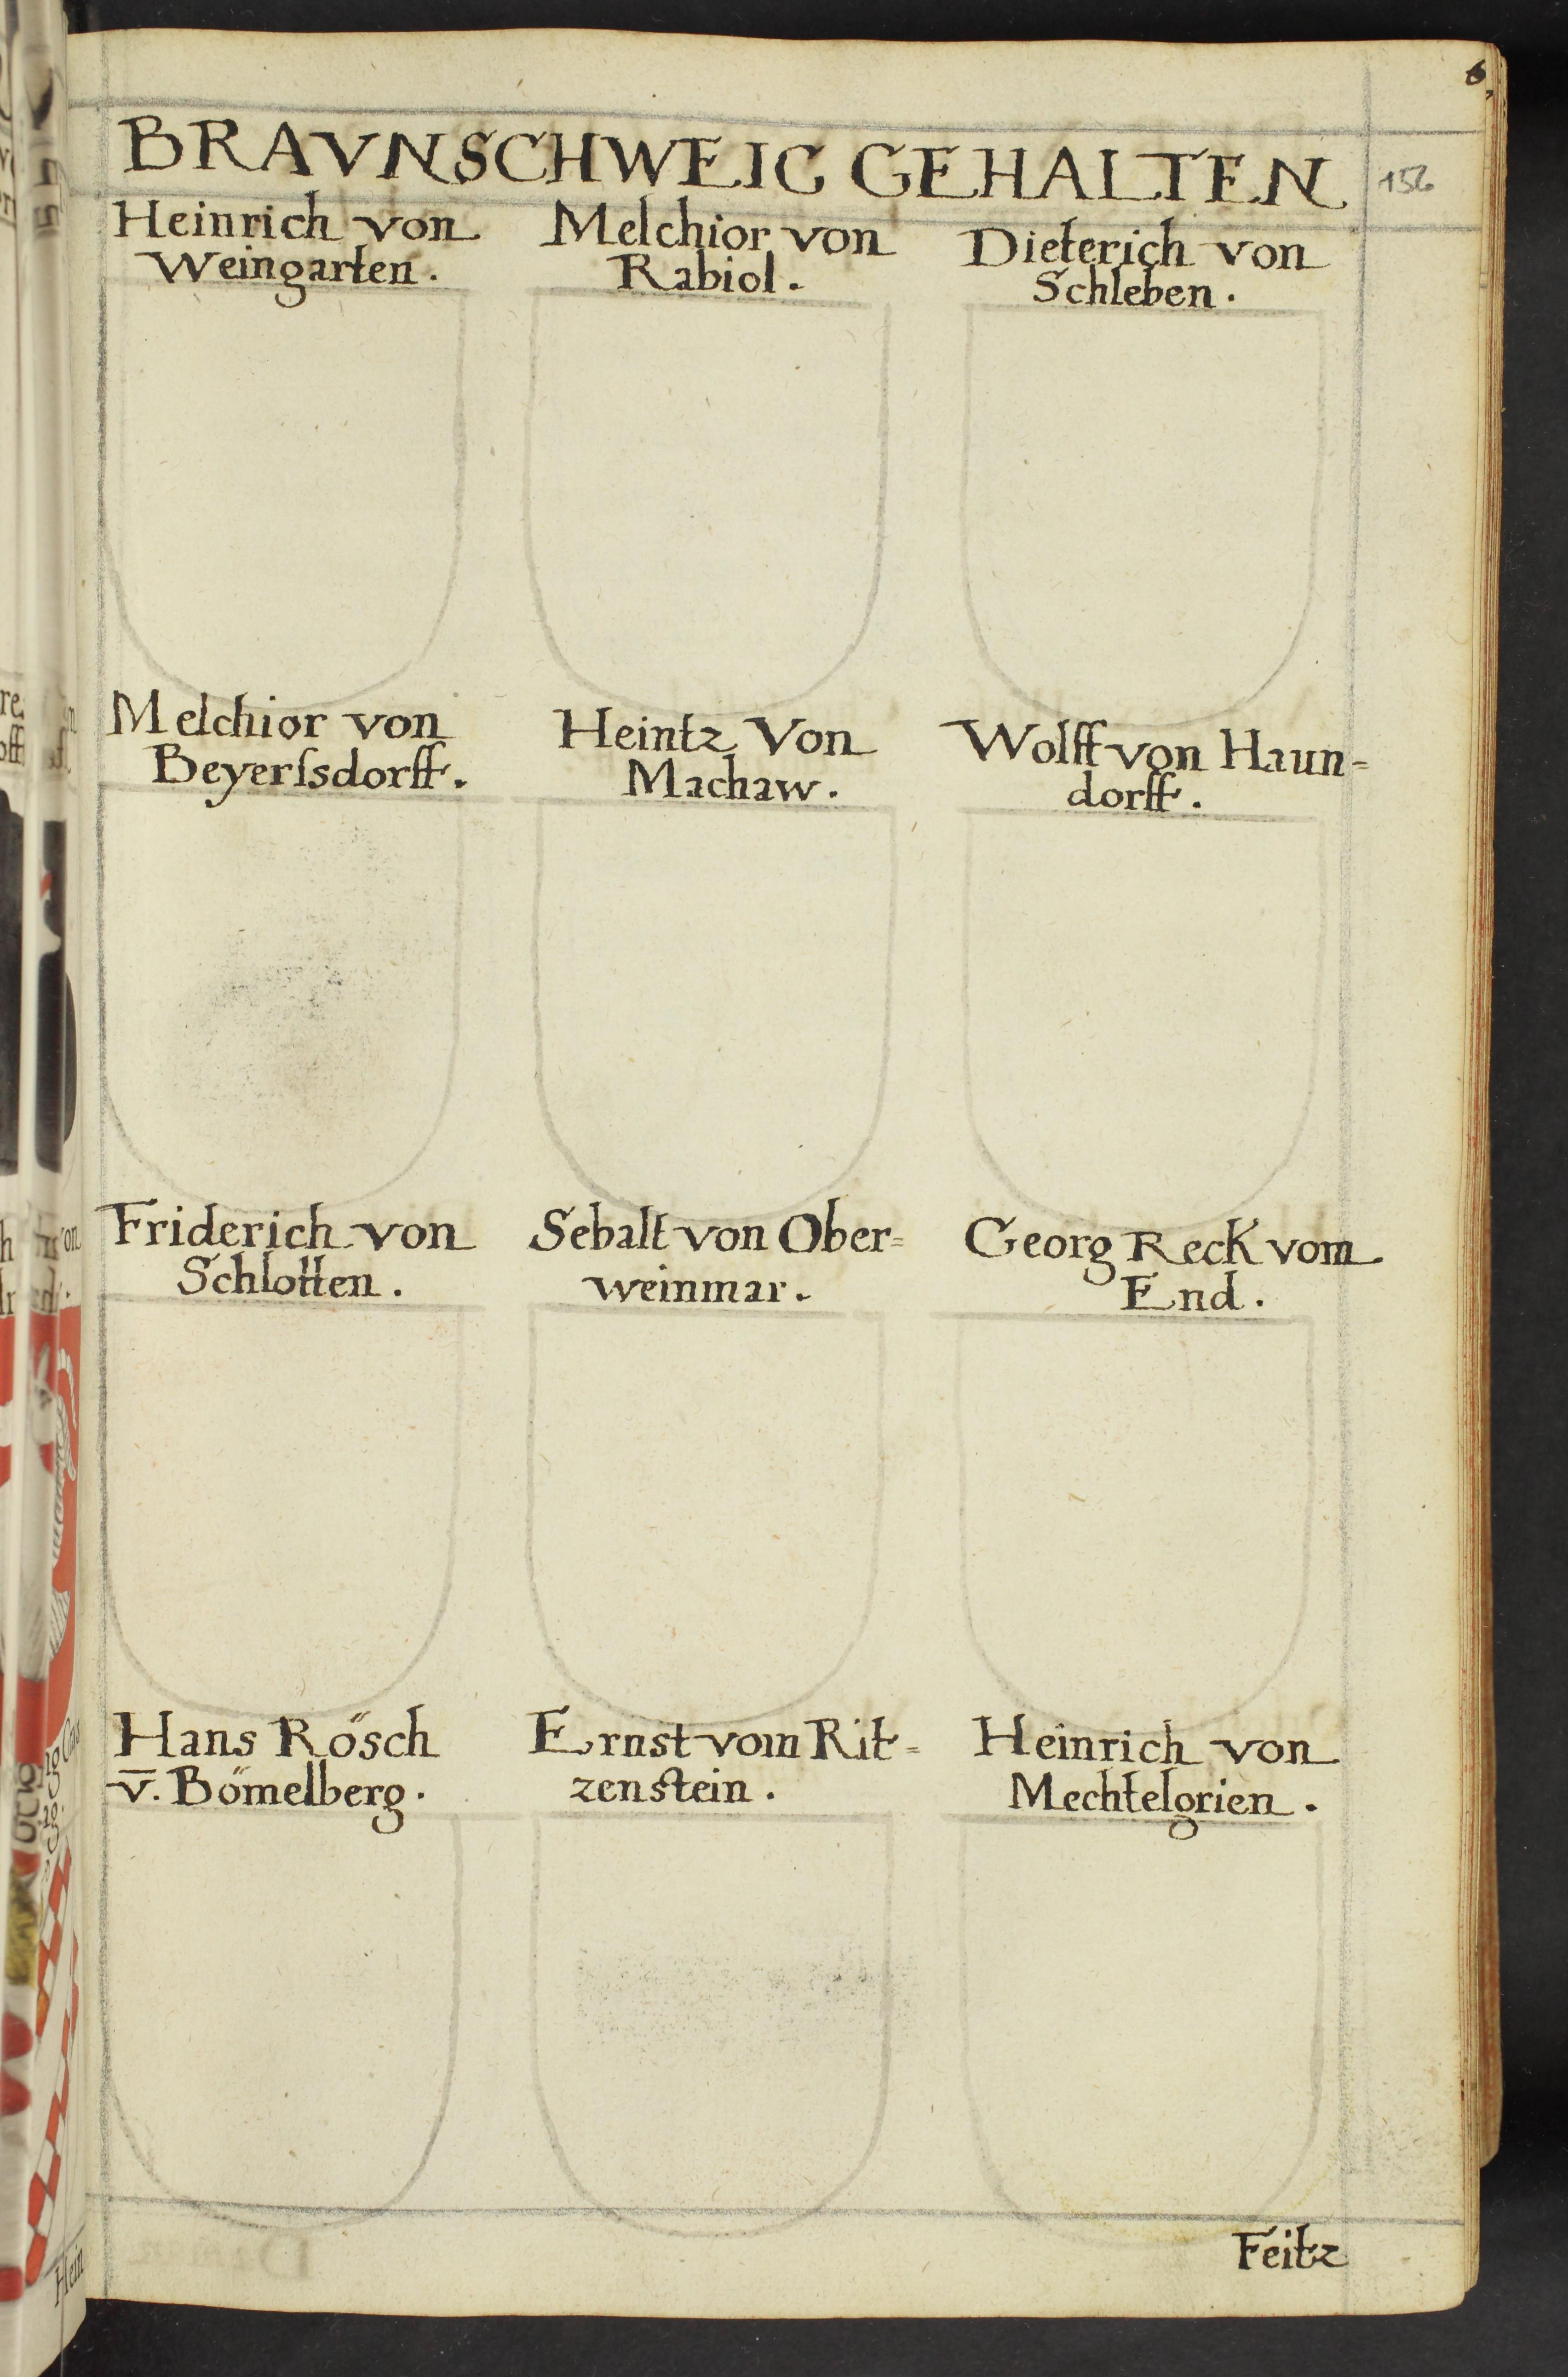 6,
BRAVNSCHWEIG GEHALTEN
156
Heinrich von
Weingarten.
Melchior von
Rabiol.
Dieterich von
Schleben.
Melchior von
Beyerſsdorff.
Heintz Von
Machaw.
Wolff von Haun=
dorff.
Friderich von
Schlotten.
Sebalt von Ober=
weinmar.
Georg Reck vom
End.
Hans Rösch
v̄. Bömelberg.
Ernst vom Rit=
zenstein.
Heinrich von
Mechtelgrien.
Feitz
Hein